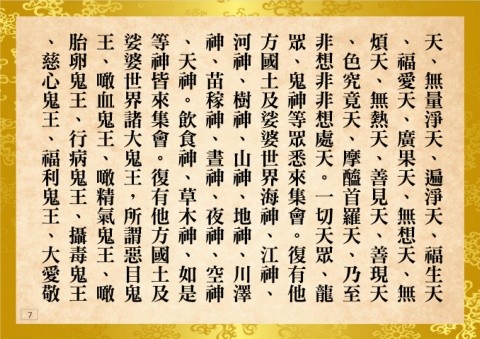 天、無量淨天、遍淨天、福生天
、福愛天、廣果天、無想天、無
煩天、無熱天、善見天、善現天
、色究竟天、摩醯首羅天、乃至
非想非非想處天。一切天眾、龍
眾、鬼神等眾悉來集會。復有他
方國土及娑婆世界海神、江神、
河神、樹神、山神、地神、川澤
神、苗稼神、晝神、夜神、空神
、天神。飲食神、草木神、如是
等神皆來集會。復有他方國土及
娑婆世界諸大鬼王，所謂惡目鬼
王、噉血鬼王、噉精氣鬼王、噉
胎卵鬼王、行病鬼王、攝毒鬼王
、慈心鬼王、福利鬼王、大愛敬
7